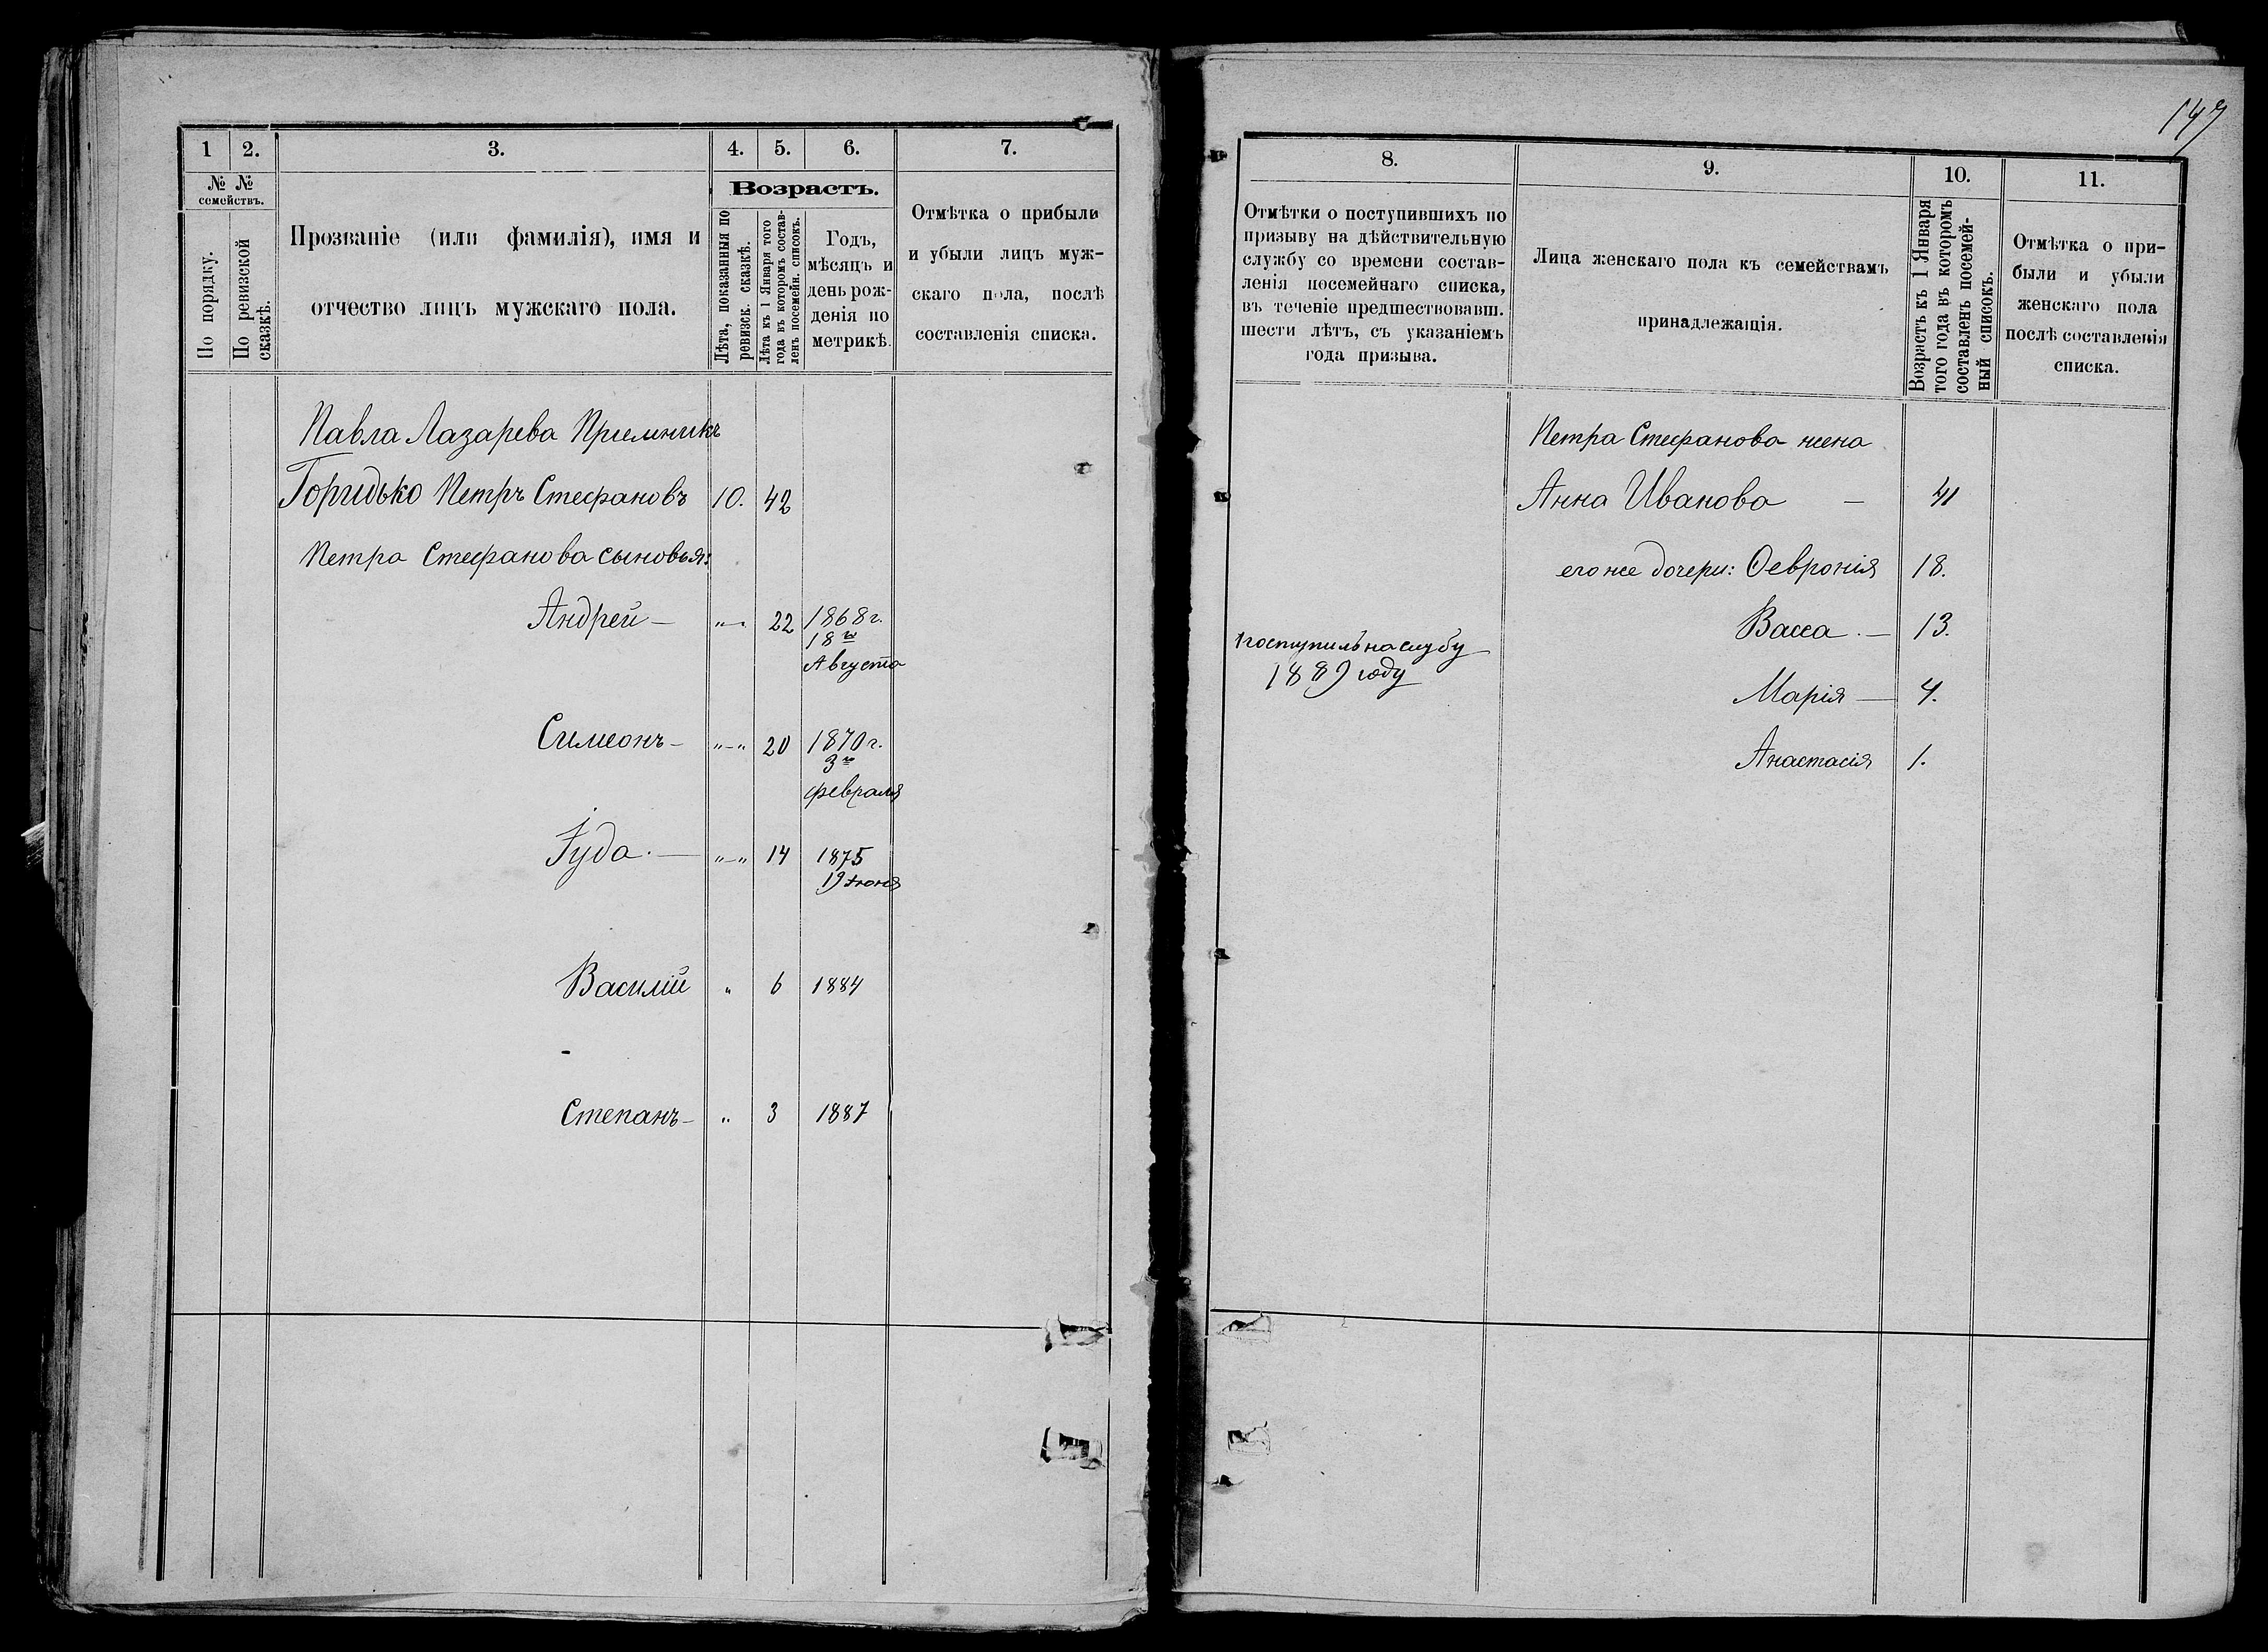 1
2.
3.
4.
5.
6.
7.
№ №
семействъ.
По порядку.
По ревизской
сказкѣ.
Прозваніе (или фамилія), имя и
отчество лицъ мужскаго пола.
Возрастъ.
Лѣта, показанныя по
ревизск. сказкѣ.
Лѣта къ 1 Января того
года въ которомъ состав-
ленъ посемейн. списокъ.
Годъ,
мѣсяцъ и
день рож-
денія по
метрикѣ.
Отмѣтка о прибыли
и убыли лицъ муж-
скаго пола, послѣ
составленія списка.
Павла Лазарева Приемникъ
Горидько Петръ Стефановъ 10. 42
Петра Стефанова сыновья:
Андрей — „—„ 22 1868 г.
18го
Августа
Симеонъ — „—„ 20 1870 г.
3го
февраля
Іуда. — „—„ 14 1875
19 Июня
Василій „ 6 1884
Степанъ — „ 3 1887
8.
9.
10.
11.
Отмѣтки о поступившихъ по
призыву на дѣйствительную
службу со времени состав-
ленія посемейнаго списка,
въ теченіе предшествовавш.
шести лѣтъ, съ указаніемъ
года призыва.
Лица женскаго пола къ семействамъ
принадлежащія.
Возрастъ къ 1 Января
того года въ которомъ
составленъ посемей-
ный списокъ.
Отмѣтка о при-
были и убыли
женскаго пола
послѣ составленія
списка.
Петра Стефанова жена
Анна Иванова — 41
его же дочери: Ѳевронія 18.
Васса. — 13.
поступилъ на службу
1889 году
Марія — 4.
Анастасія 1.